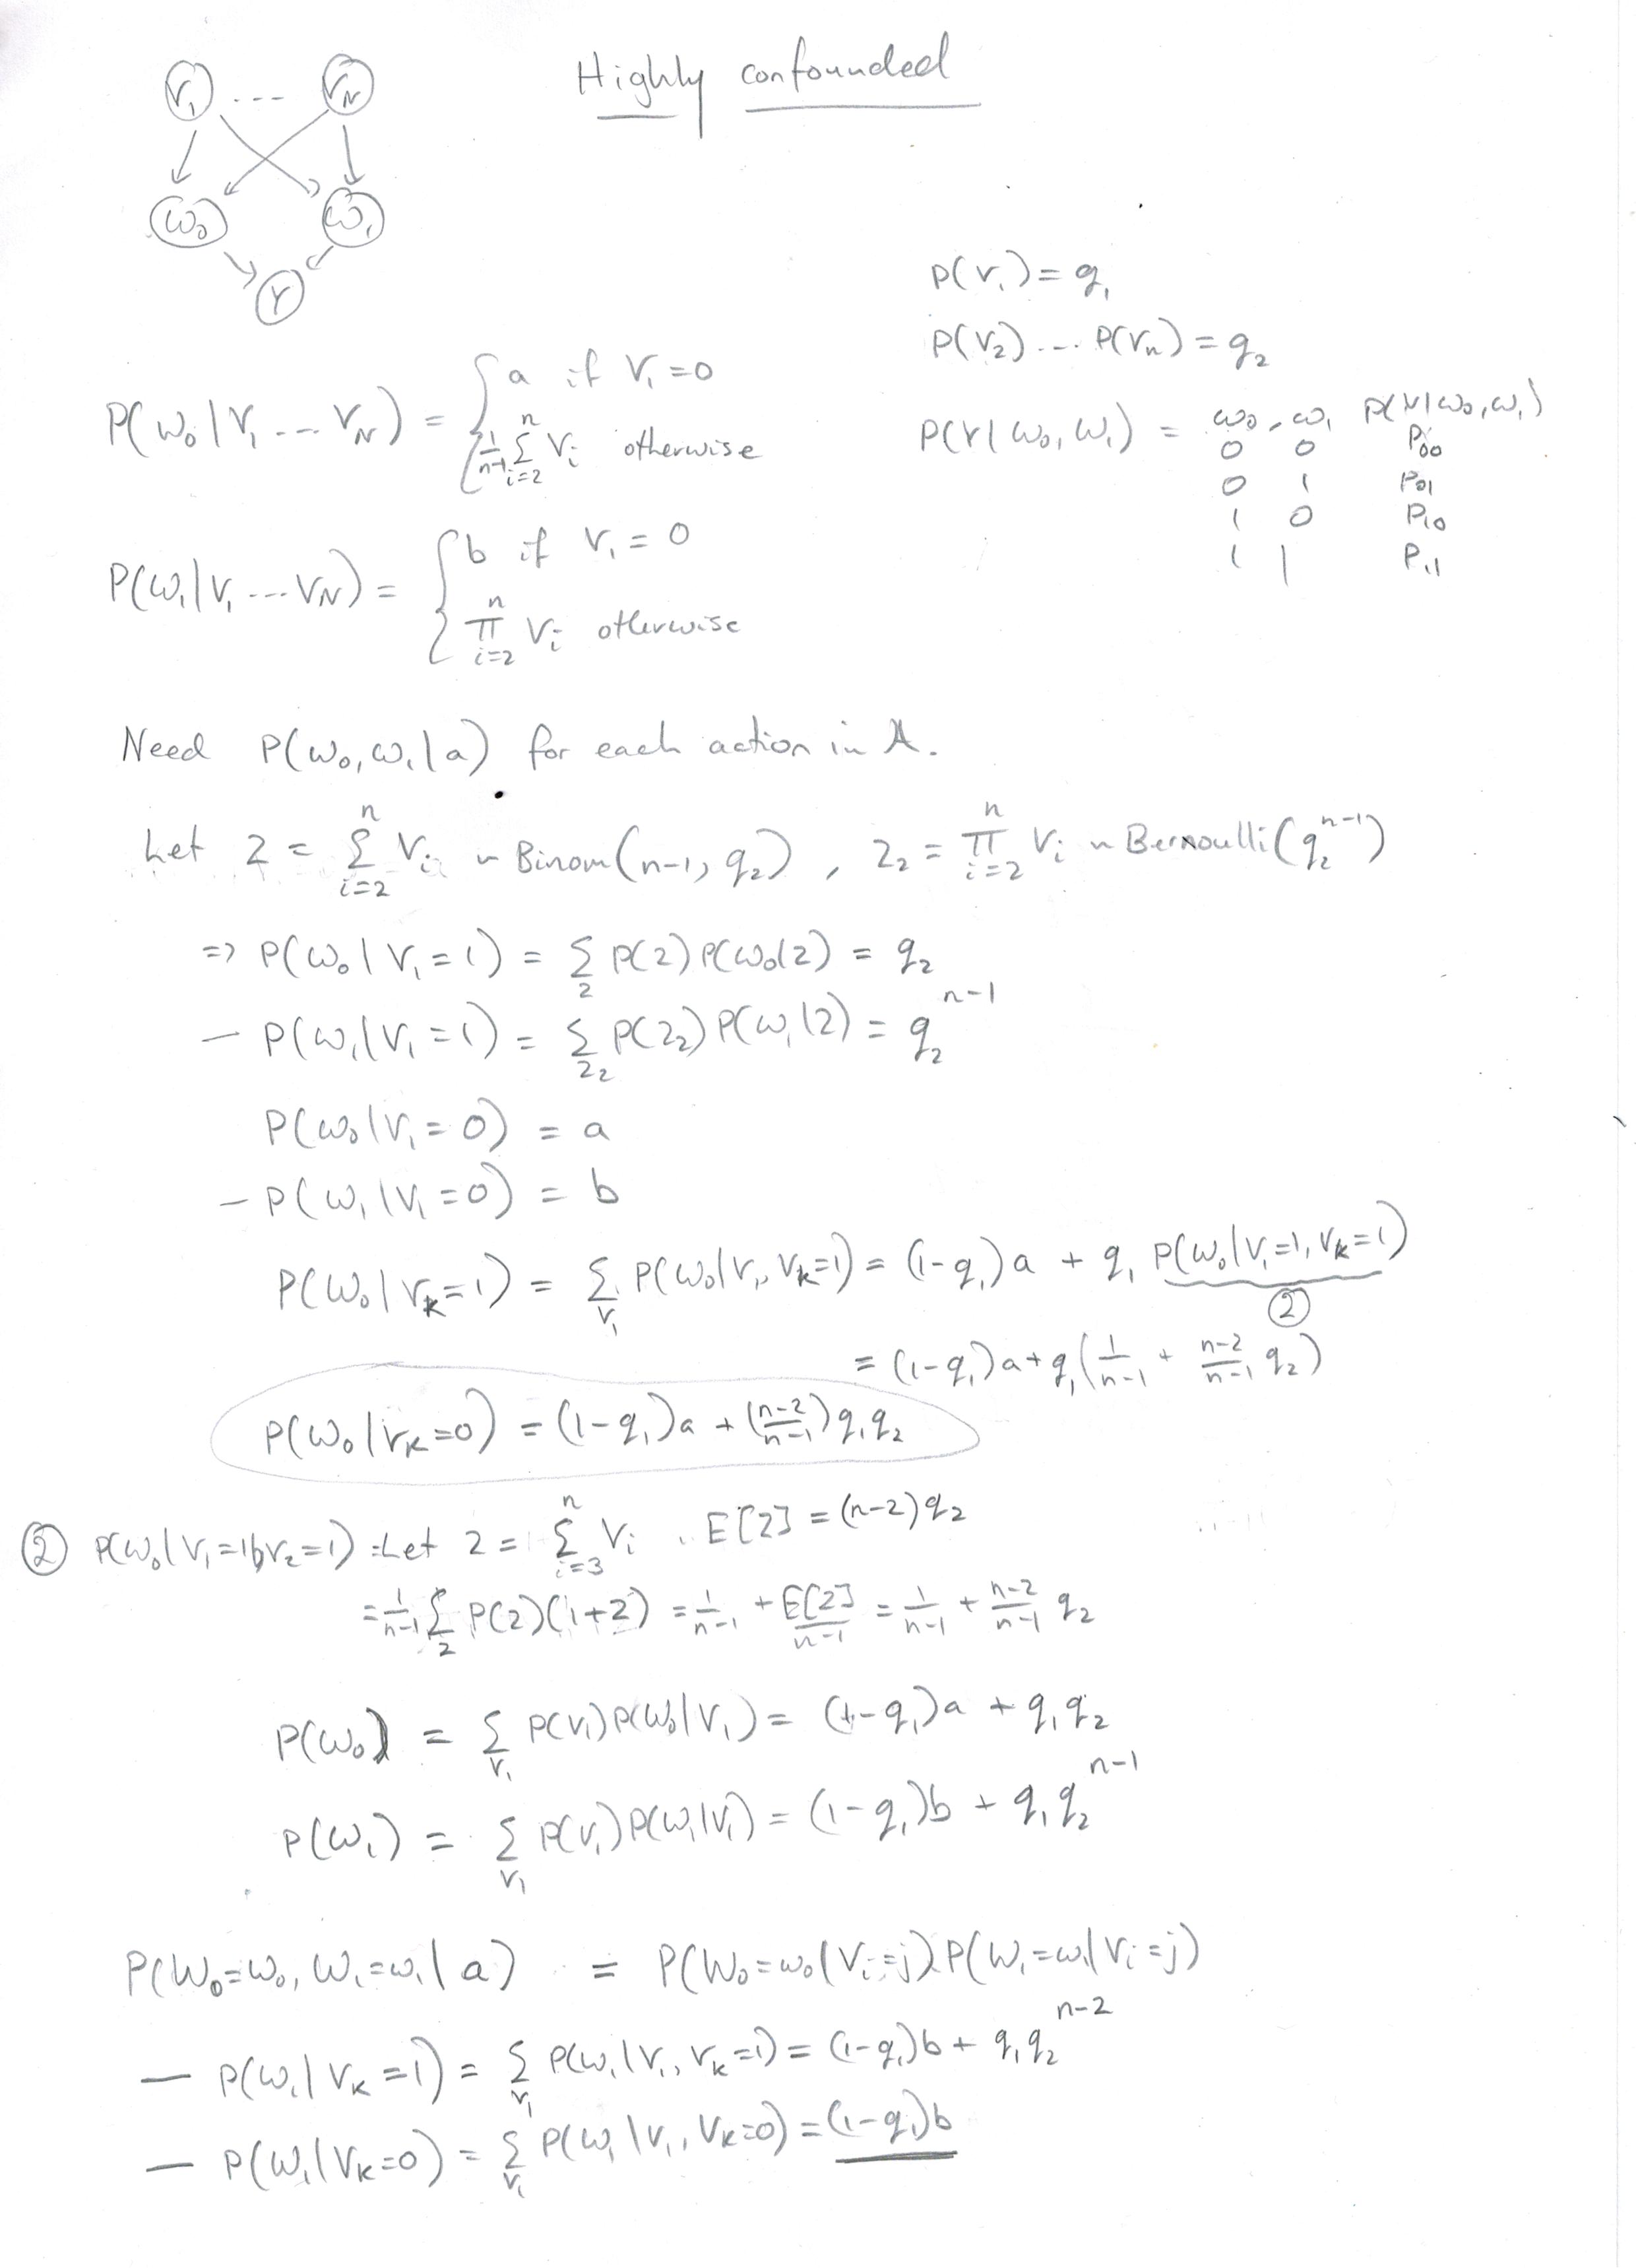 Highly confounded
V₁ ... V_N
W₀ W₁
Y
P(V₁) = q₁
P(V₂) ... P(Vₙ) = q₂
P(W₀|V₁ --- V_N) = { a if V₁ = 0
1/(n-1) Σ_{i=2}^{n} Vᵢ otherwise
P(Y|W₀, W₁) = W₀, W₁ P(Y|W₀, W₁)
0 0 P₀₀
0 1 P₀₁
1 0 P₁₀
1 1 P₁₁
P(W₁|V₁ --- V_N) = { b if V₁ = 0
∏_{i=2}^{n} Vᵢ otherwise
Need P(W₀, W₁|a) for each action in A.
Let Z = Σ_{i=2}^{n} Vᵢ ~ Binom(n-1, q₂), Z₂ = ∏_{i=2}^{n} Vᵢ ~ Bernoulli(q₂^{n-1})
=> P(W₀|V₁=1) = Σ_Z P(Z) P(W₀|Z) = q₂
— P(W₁|V₁=1) = Σ_{Z₂} P(Z₂) P(W₁|Z) = q₂^{n-1}
P(W₀|V₁=0) = a
— P(W₁|V₁=0) = b
P(W₀|V_k=1) = Σ_{V₁} P(W₀|V₁, V_k=1) = (1-q₁)a + q₁ P(W₀|V₁=1, V_k=1)
②
= (1-q₁)a + q₁(1/(n-1) + (n-2)/(n-1) q₂)
P(W₀|V_k=0) = (1-q₁)a + ((n-2)/(n-1)) q₁q₂
② P(W₀|V₁=1, V₂=1) : Let Z = Σ_{i=3}^{n} Vᵢ . E[Z] = (n-2)q₂
= 1/(n-1) Σ_Z P(Z)(1+Z) = 1/(n-1) + E[Z]/(n-1) = 1/(n-1) + (n-2)/(n-1) q₂
P(W₀) = Σ_{V₁} P(V₁) P(W₀|V₁) = (1-q₁)a + q₁q₂
P(W₁) = Σ_{V₁} P(V₁) P(W₁|V₁) = (1-q₁)b + q₁q₂^{n-1}
P(W₀=w₀, W₁=w₁|a) = P(W₀=w₀|Vᵢ=j) P(W₁=w₁|Vᵢ=j)
— P(W₁|V_k=1) = Σ_{V₁} P(W₁|V₁, V_k=1) = (1-q₁)b + q₁q₂^{n-2}
— P(W₁|V_k=0) = Σ_{V₁} P(W₁|V₁, V_k=0) = (1-q₁)b